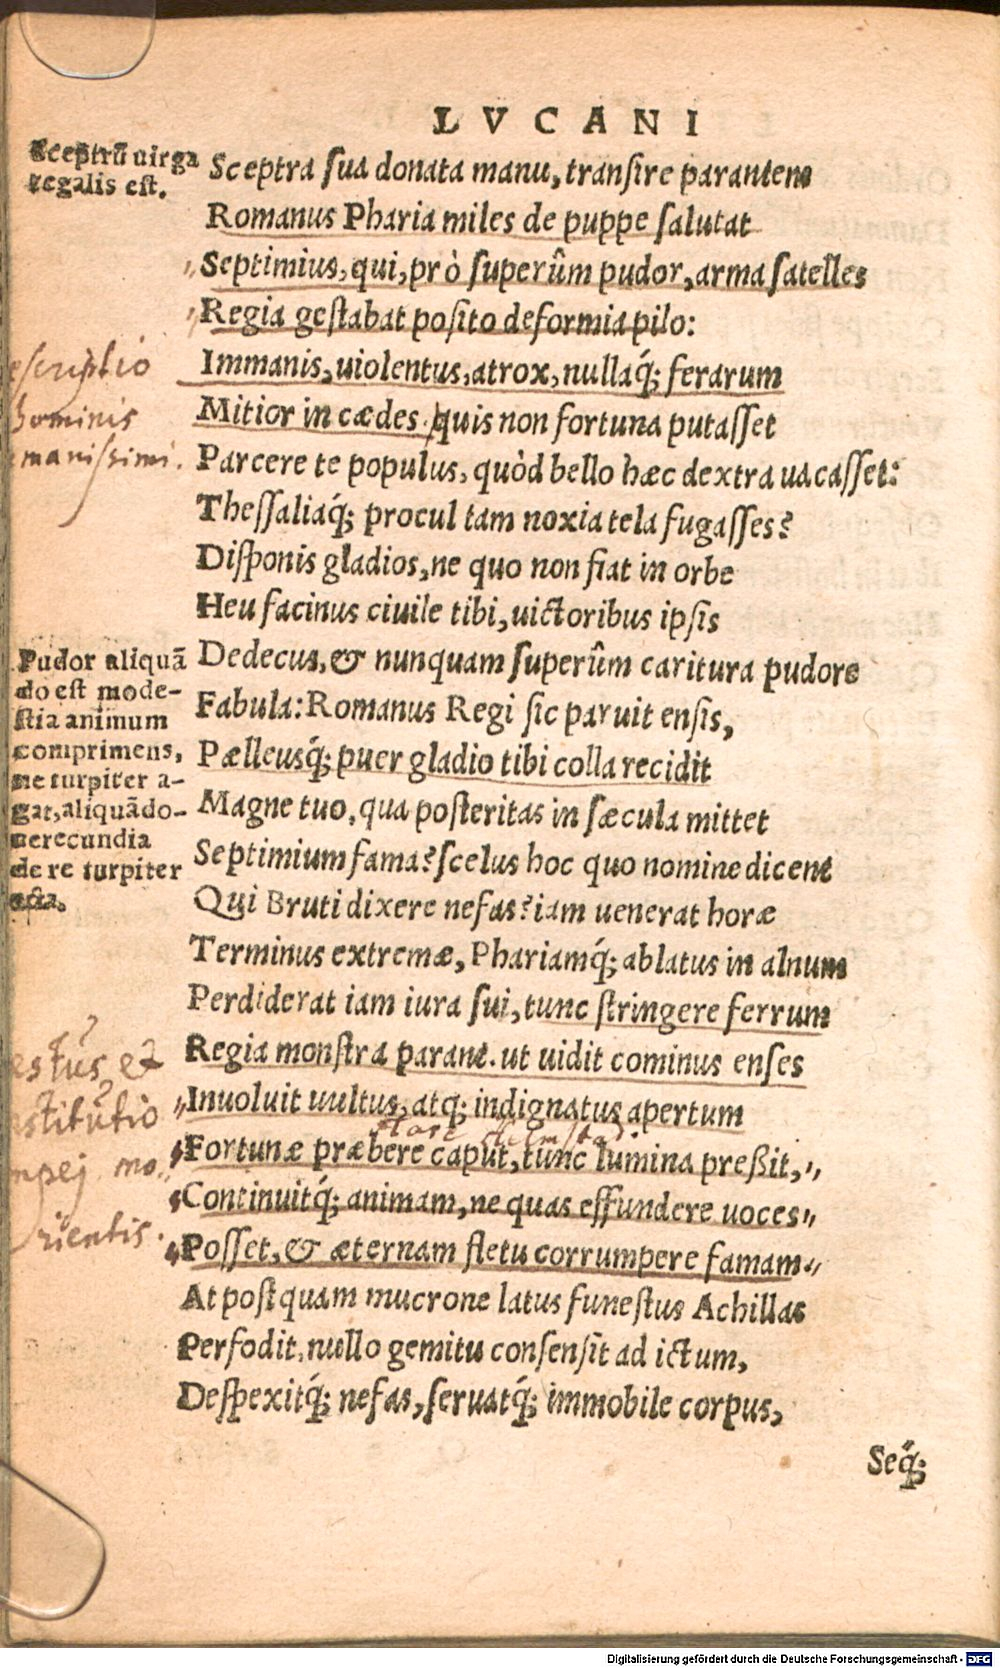 LVCANI
Sceptrũ uirga
regalis est.
Sceptra ſua donata manu, tranſire parantem
Romanus Pharia miles de puppe ſalutat
Septimius, qui, prò ſuperûm pudor, arma ſatelles
Regia geſtabat poſito deformia pilo:
Immanis, uiolentus, atrox, nullaq́; ferarum
Mitior in cædes. quis non fortuna putaſſet
Parcere te populus, quòd bello hæc dextra uacaſſet:
Theſſaliaq́; procul tam noxia tela fugaſſes?
Diſponis gladios, ne quo non fiat in orbe
Heu facinus ciuile tibi, uictoribus ipſis
Dedecus, & nunquam ſuperûm caritura pudore
Fabula: Romanus Regi ſic paruit enſis,
Pælleusq́; puer gladio tibi colla recidit
Magne tuo, qua poſteritas in ſæcula mittet
Septimium fama? ſcelus hoc quo nomine dicent
Qui Bruti dixere nefas? iam uenerat horæ
Terminus extremæ, Phariamq́; ablatus in alnum
Perdiderat iam iura ſui, tunc ſtringere ferrum
Regia monſtra parant. ut uidit cominus enſes
Inuoluit uultus, atq; indignatus apertum
Fortunæ præbere caput, tunc lumina preßit,
Continuitq́; animam, ne quas effundere uoces
Poſſet, & æternam fletu corrumpere famam.
At poſtquam mucrone latus funeſtus Achillas
Perfodit, nullo gemitu conſenſit ad ictum,
Deſpexitq́; nefas, ſeruatq́; immobile corpus,
Seq́;
escriptio
hominis
manissimi.
Pudor aliquã
do est mode-
ſtia animum
comprimens,
ne turpiter a-
gat, aliquãdo
uerecundia
de re turpiter
acta.
estus et
stitutio
mpej mo
rientis.
Digitalisierung gefördert durch die Deutsche Forschungsgemeinschaft - DFG